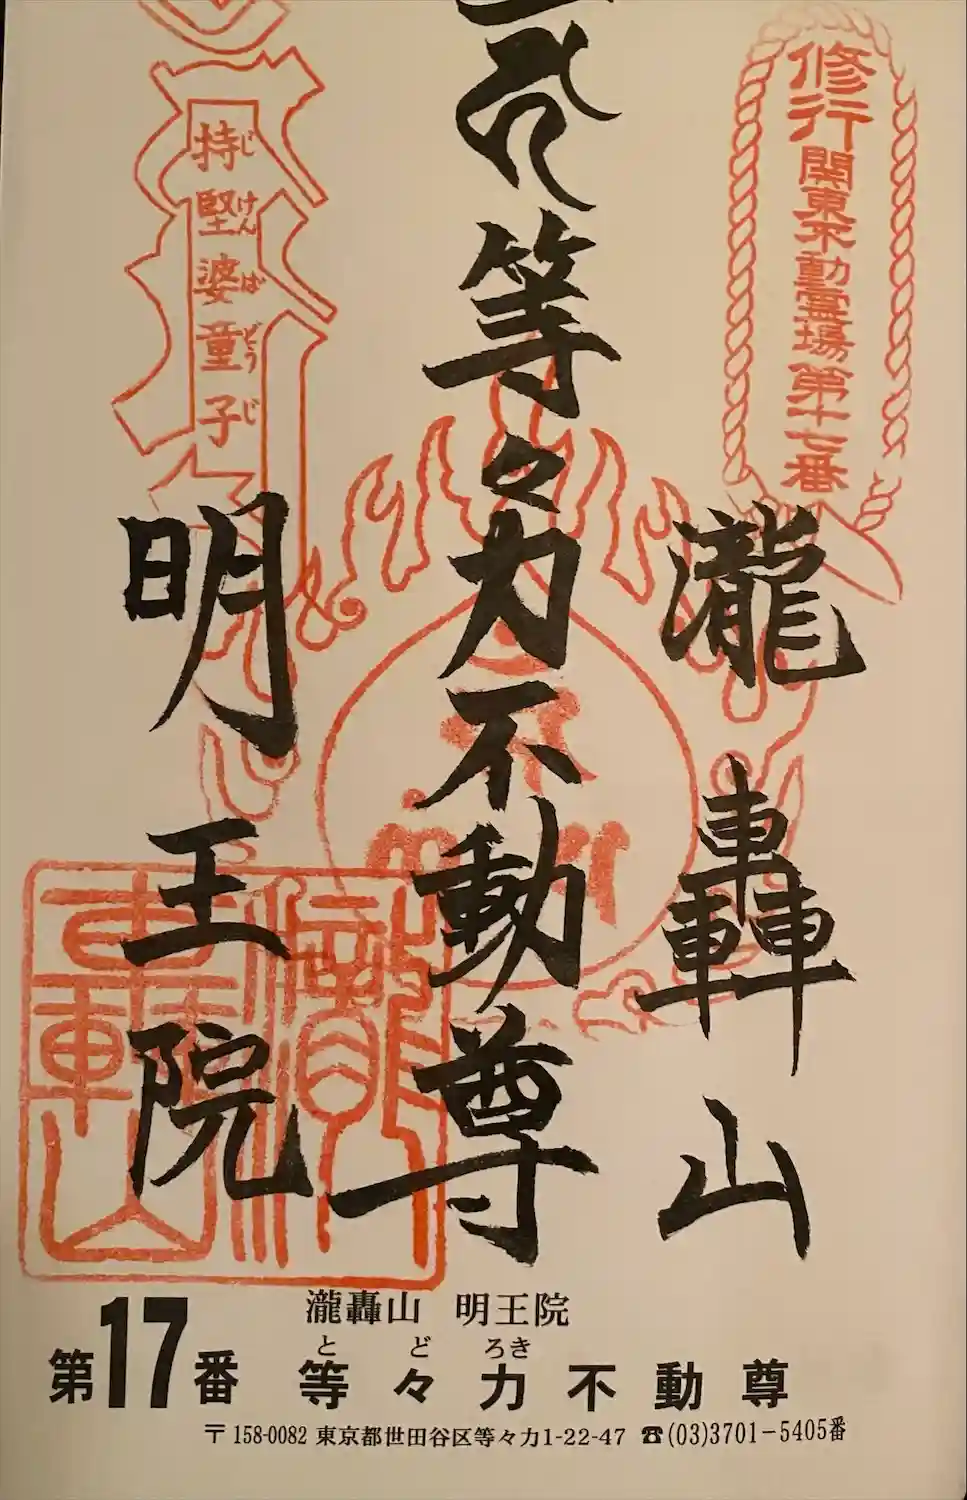 修行
関東不動霊場第十七番
瀧轟山
等々力不動尊
明王院
持堅婆童子
じけんばどうじ
瀧轟山
瀧轟山 明王院
とどろき
第17番 等々力不動尊
〒158-0082 東京都世田谷区等々力1-22-47 ☎(03)3701-5405番